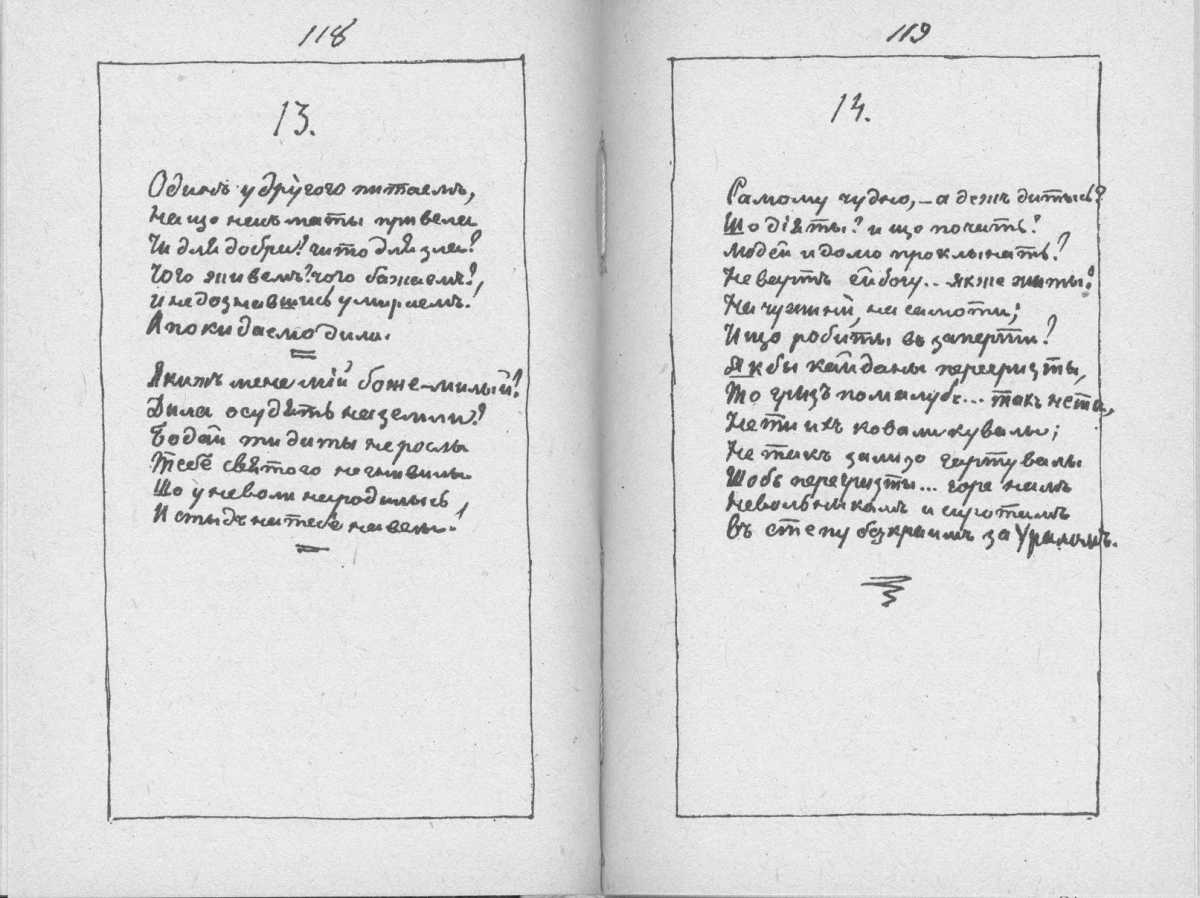 118
13.
Одинъ у другого питаемъ,
На що насъ маты привела
Чи для добра? чи то для зла?
Чого живемъ? чого бажаем?,
И недознавшись умираемъ!
А покидаемо дила.
Якижъ мене мій боже-милый!
Дила осудять на земли?
Бодай ти диты не рослы
Тебе святого не гнивилы
Що у неволи народылысь
И стыдъ на тебе несли!
119
14.
Самому чудно, – а дежъ дитысь?
Що діяты? и що почать?
Людей и долю проклынать?
Не варть ейбогу.. як же жыты?
На чужини, на самоти;
И що робиты въ заперти?
Якбы кайданы перегризты,
То гризъ помалубъ... такъ не ти,
Не ти ихъ ковали кувалы;
Не такъ зализо гартувалы
Щобъ перегризти... горе намъ
Невольникамъ и сиротамъ
Въ степу безкраимъ за Ураломъ.